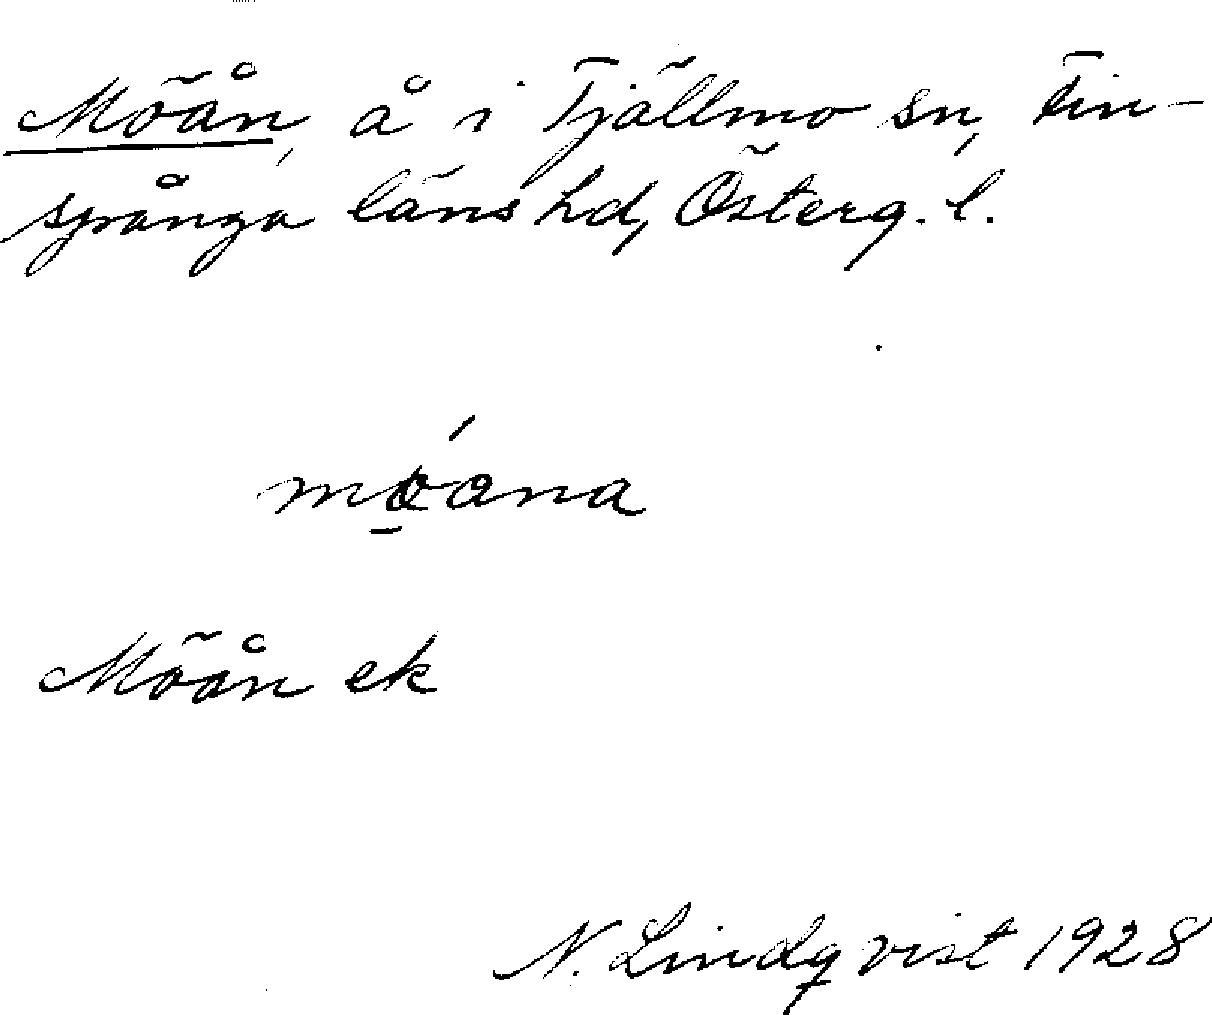 Möån, å i Tjällmo sn, Fin-
spånga läns hd, Österg. l.
Möån ek
N. Lindqvist 1928